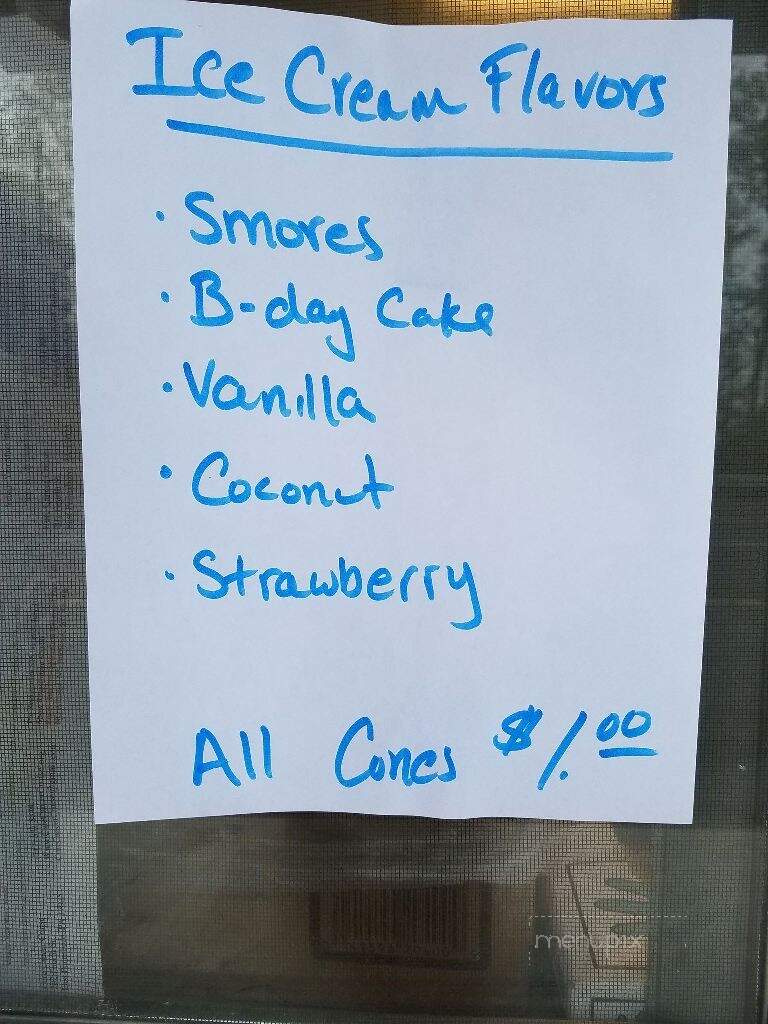 Ice Cream Flavors
· Smores
· B-day Cake
· Vanilla
· Coconut
· Strawberry
All Cones $1.00
menupix